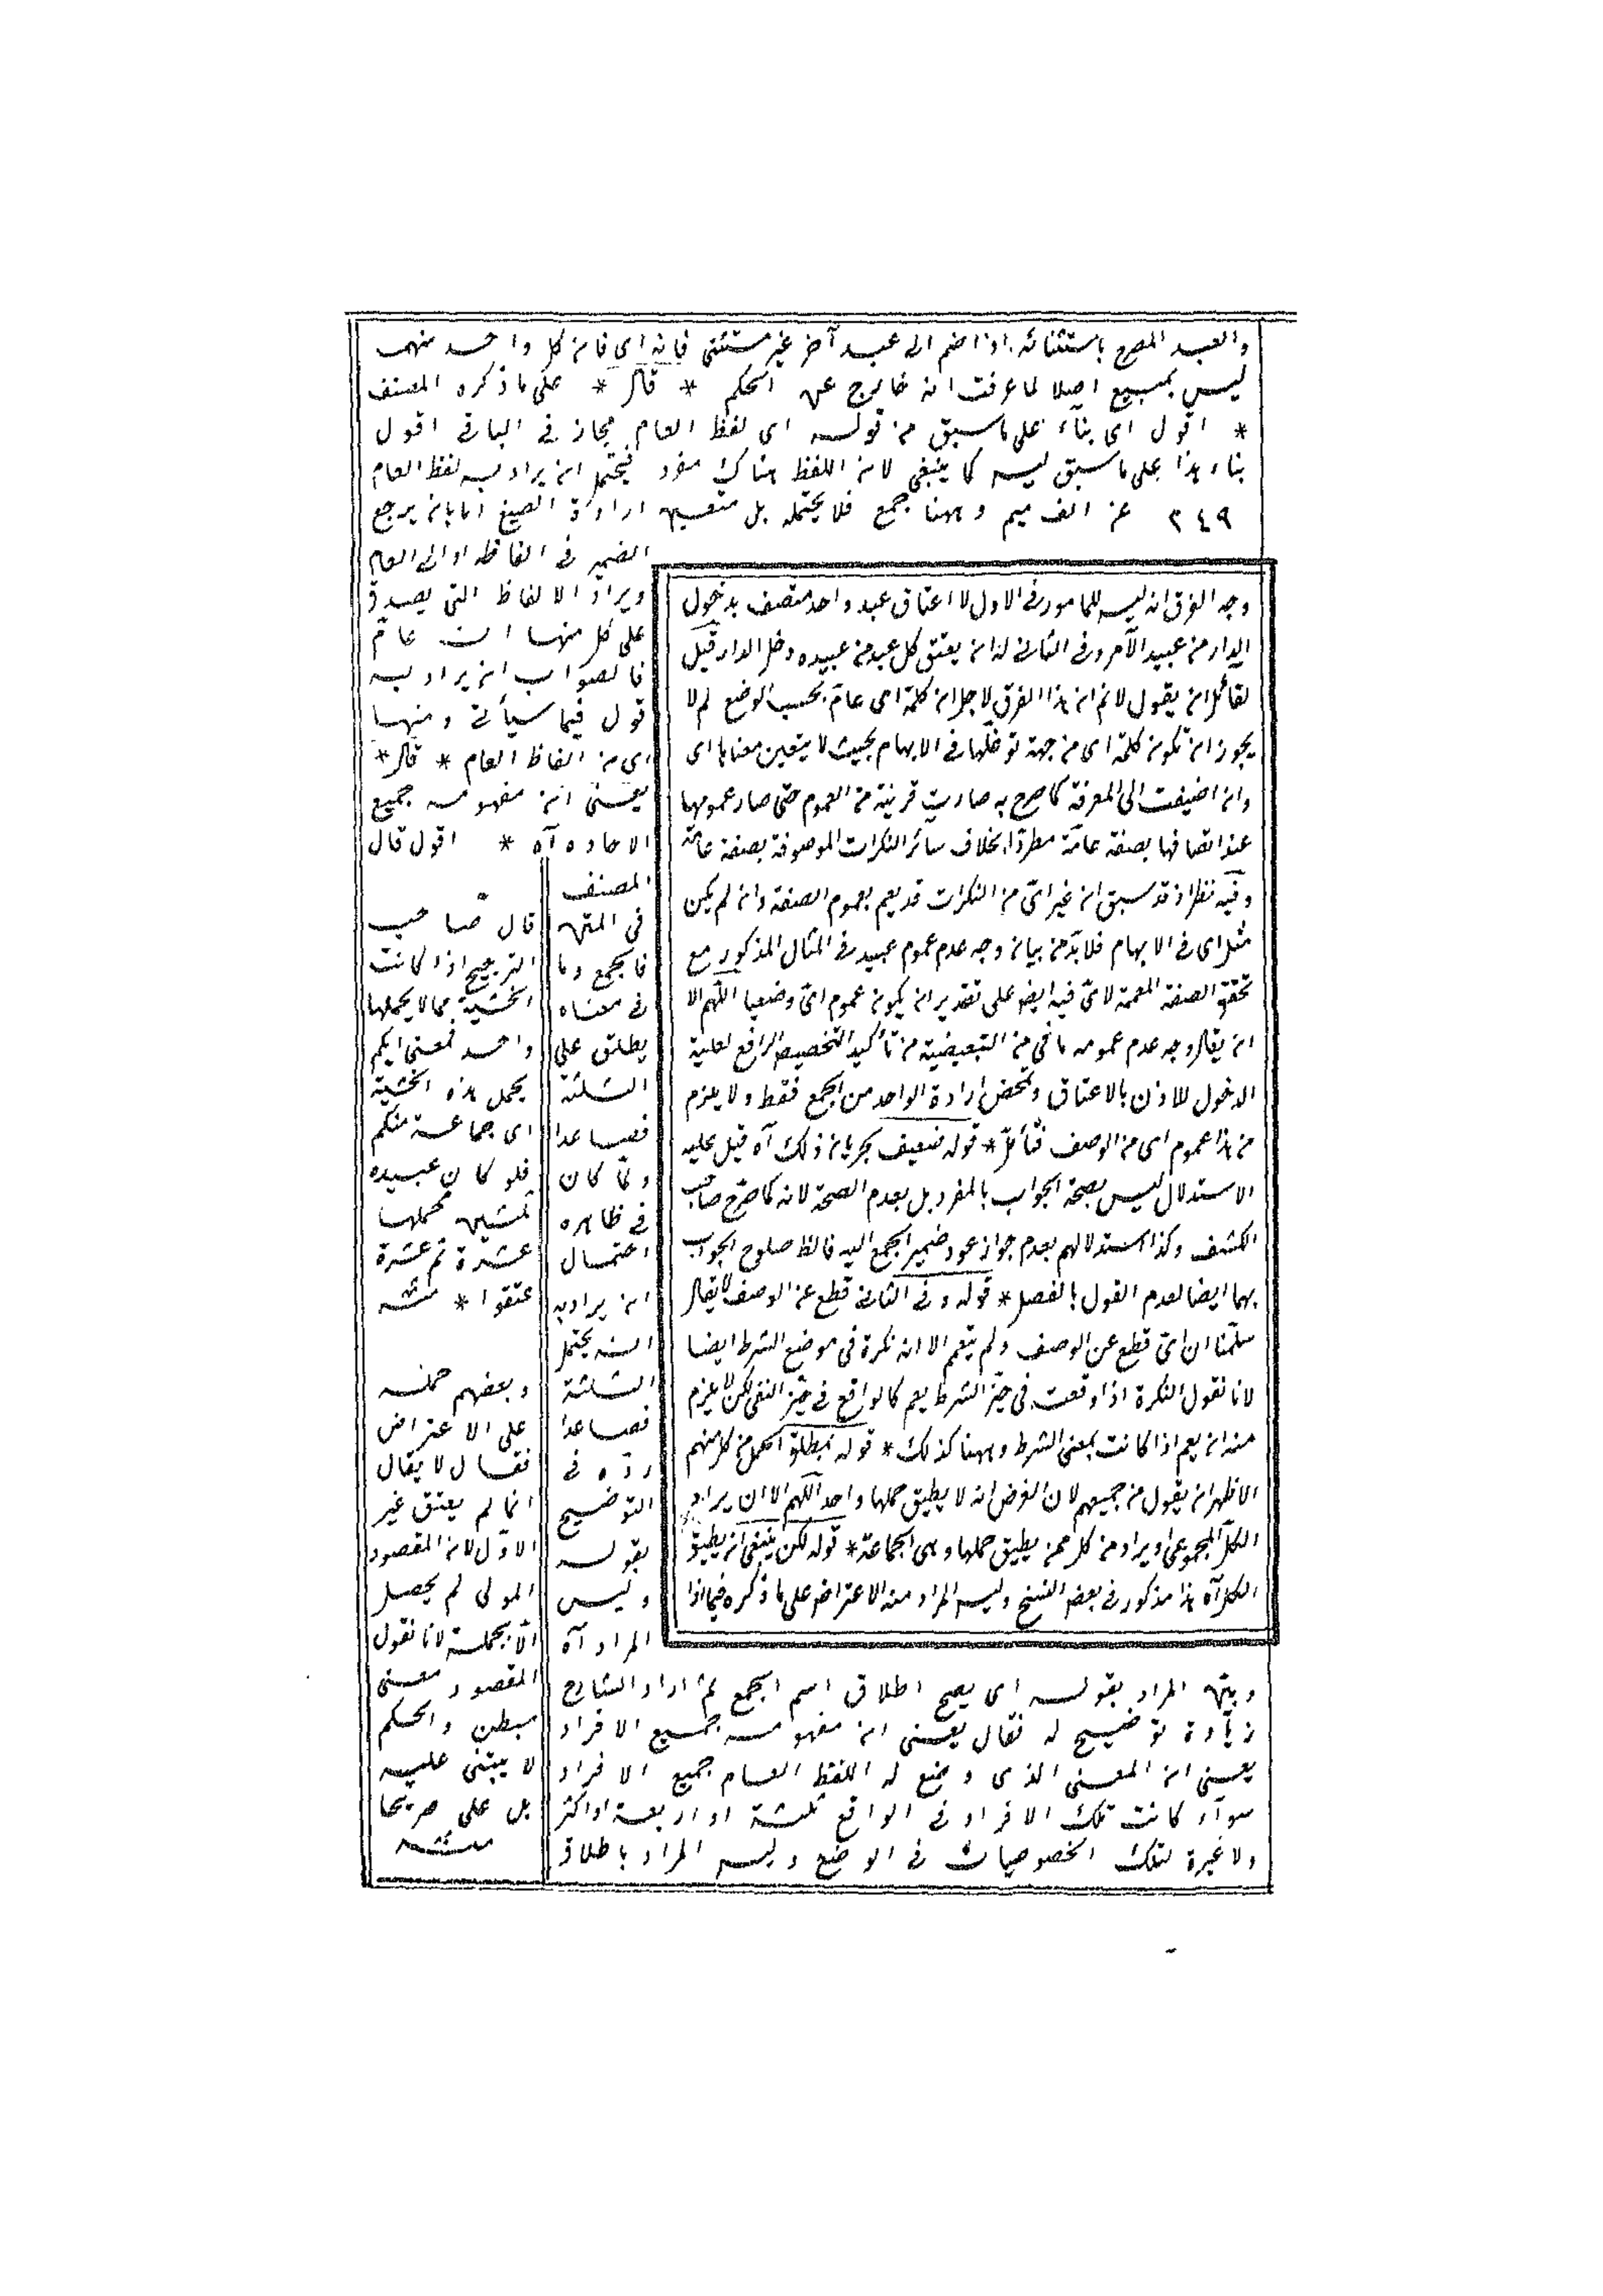 والعبد المصرح باستثنائه اذا ضم الى عبد آخر غير مستثنى فانه اى فان كل واحد منهما
ليس بمبيع اصلا لما عرفت انه خارج عن الحكم * قال * على ما ذكره المصنف
* اقول اى بناء على ما سبق من قوله اى لفظ العام مجاز فى الباقى اقول
بناء هذا على ما سبق ليس كما ينبغى لان اللفظ هناك مفرد فيحتمل ان يراد به لفظ العام
٢٤٩ عن الف ميم وههنا جمع فلا يحتمله بل متعين ارادة الصيغ اما بان يرجع
الضمير فى الفاظه او الى العام
ويراد الالفاظ التى يصدق
على كل منها انه عام
فالصواب ان يراد به
قول فيما سيأتى ومنها
اى من الفاظ العام * قال *
يعنى ان مفهومه جميع
الاحاد ه آه * اقول قال
المصنف
فى المتن
فالجمع وما
فى معناه
يطلق على
الثلثة
فصاعدا
ولما كان
فى ظاهره
احتمال
ان يراد به
انه يحتمل
الثلثة
فصاعدا
رده فى
التوضيح
بقوله
وليس
المراد آه
وبين المراد بقوله اى يصح اطلاق اسم الجمع ثم اراد الشارح
زيادة توضيح له فقال يعنى ان مفهومه جميع الافراد
يعنى ان المعنى الذى وضع له اللفظ العام جميع الافراد
سواء كانت تلك الافراد فى الواقع ثلثة او اربعة او اكثر
ولا عبرة لتلك الخصوصيات فى الوضع وليس المراد باطلاق
وجه الفرق انه ليس للمأمور فى الاول الا اعتاق عبد واحد متصف بدخول
الدار من عبيد الآمر وفى الثانى له ان يعتق كل عبد من عبيده دخل الدار قيل
لقائل ان يقول لا نم ان هذا الفرق لاجل ان كلمة اى عام بحسب الوضع لم لا
يجوز ان تكون كلمة اى من جهة توغلها فى الابهام بحيث لا يتعين معناها اى
وان اضيفت الى المعرفة كما صرح به صارت قرينة من العموم حتى صار عمومها
عند اتصافها بصفة عامة مطردا بخلاف سائر النكرات الموصوفة بصفة عامة
وفيه نظر اذ قد سبق ان غير اى من النكرات قد يعم بعموم الصفة وان لم يكن
مثل اى فى الابهام فلا بد من بيان وجه عدم عموم عبيد فى المثال المذكور مع
تحقق الصفة المعممة لاى فيه ايضا على تقدير ان يكون عموم اى وضعيا اللهم الا
ان يقال وجه عدم عمومه ما فى من التبعيضية من تأكيد التخصيص الرافع لعلية
الدخول للاذن بالاعتاق وتمحض ارادة الواحد من الجمع فقط ولا يلزم
من هذا عموم اى من الوصف فتأمل * قوله ضعيف بجريان ذلك آه قيل عليه
الاستدلال ليس بصحة الجواب بالمفرد بل بعدم الصحة لانه كما صرح صاحب
الكشف وكذا استدلالهم بعدم جواز عود ضمير الجمع اليه فالظ صلوح الجواب
بهما ايضا لعدم القول بالفصل * قوله وفى الثانى قطع عن الوصف لا يقال
سلمنا ان اى قطع عن الوصف ولم يتعمم الا انه نكرة فى موضع الشرط ايضا
لانا نقول النكرة اذا وقعت فى حيز الشرط يعم كالواقع فى حيز النفى لكن لا يلزم
منه ان يعم اذا كانت بمعنى الشرط وههنا كذلك * قوله بمطلق الحمل من كل منهم
الاظهر ان يقول من جميعهم لان الغرض انه لا يطيق حملها واحد اللهم الا ان يراد
الكل المجموعى او يراد من كل ممن يطيق حملها وهى الجماعة * قوله لكن ينبغى ان يطيق
الكل آه هذا مذكور فى بعض النسخ وليس المراد منه الاعتراض على ما ذكره فيما اذا
قال صاحب
الترجيح اذا كانت
الخشبة مما لا يحملها
واحد فمعنى ايكم
يحمل هذه الخشبة
اى جماعة منكم
فلو كان عبيده
عشرين فحملها
عشرة ثم عشرة
عتقوا * منه
وبعضهم حمله
على الاعتراض
فقال لا يقال
انما لم يعتق غير
الاول لان المقصود
المولى لم يحصل
الا بحملة لانا نقول
المقصود معنى
مبطن والحكم
لا يبتنى عليه
بل على صريحا
منه